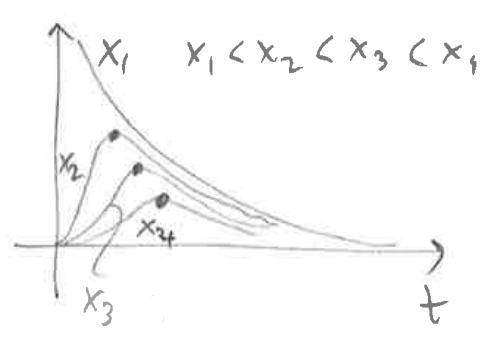 x₁ x₁ < x₂ < x₃ < x₄
x₂
x₄
x₃
t